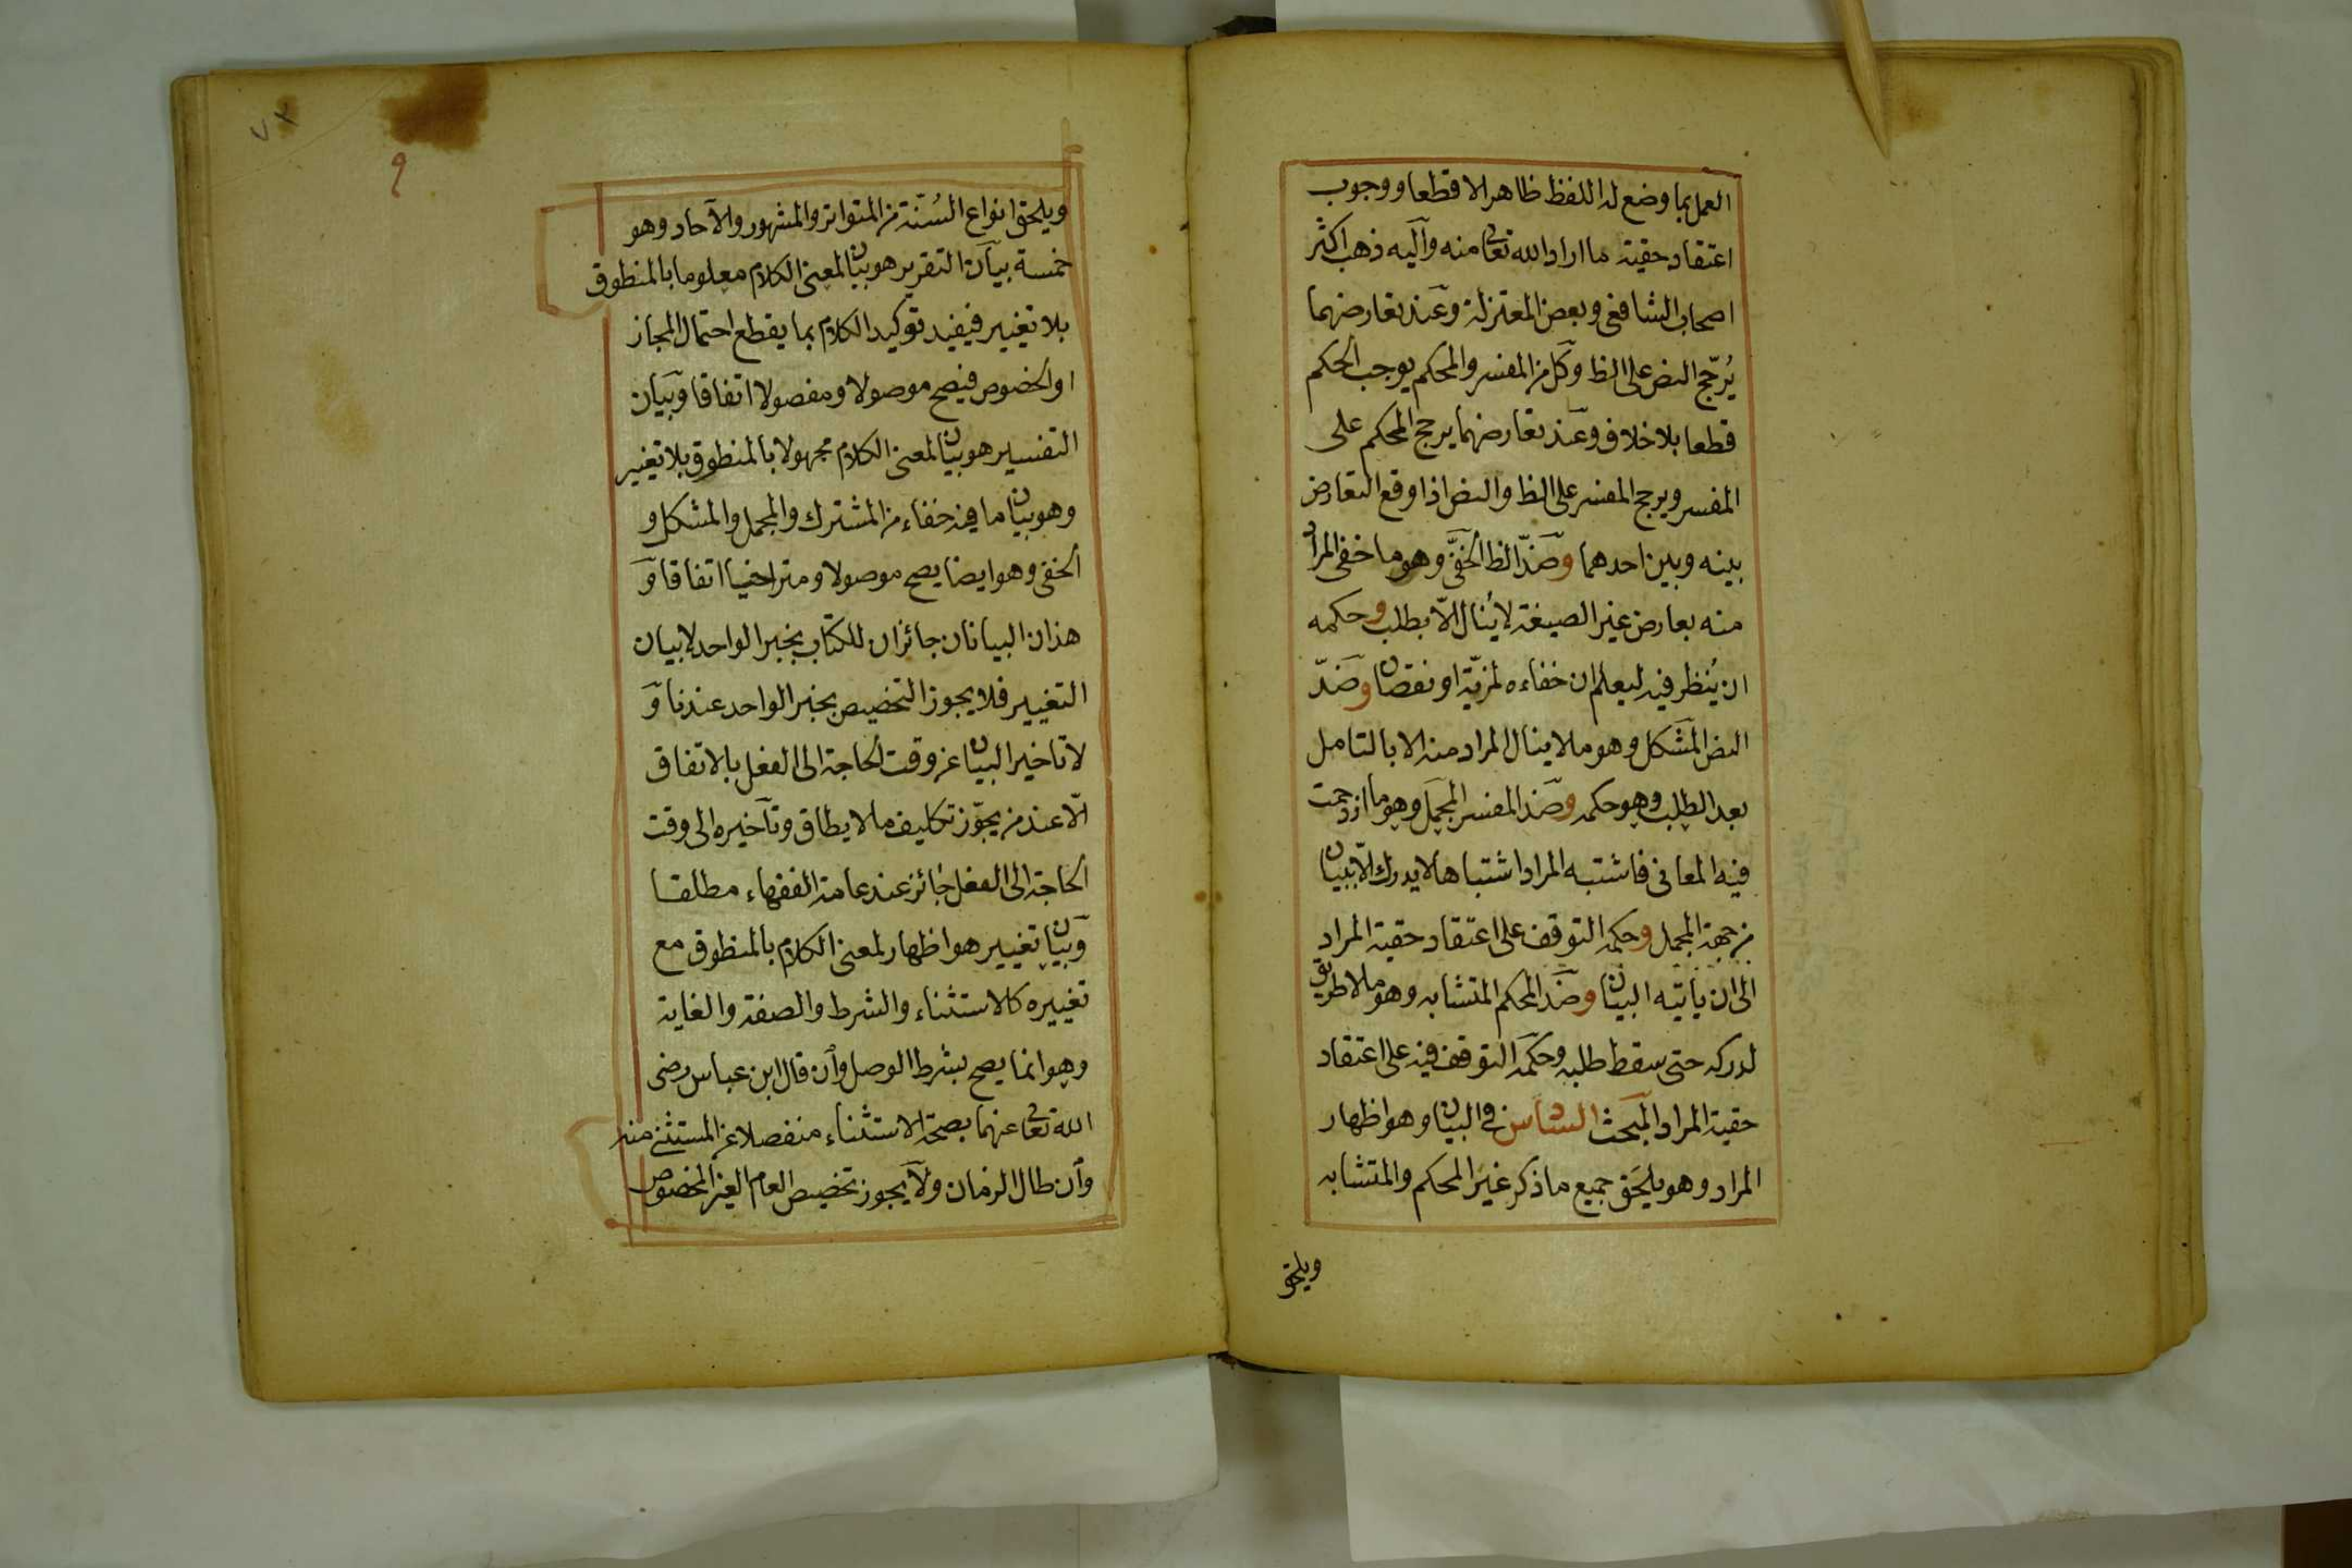 العمل بما وضع له اللفظ ظاهرا لا قطعا ووجوب
اعتقاد حقية ما اراد الله تعالى منه وآليه ذهب اكثر
اصحاب الشافعى وبعض المعتزلة وعند تعارضهما
يُرجّح النص على الظ وكل من المفسر والمحكم يوجب الحكم
قطعا بلا خلاف وعند تعارضهما يرجح المحكم على
المفسر ويرجح المفسر على الظ والنص اذا وقع التعارض
بينه وبين احدهما وضدّ الظ الخفىّ وهو ما خفى المراد
منه بعارض غير الصيغة لا يُنال الّا بطلب وحكمه
ان يُنظر فيه ليعلم ان خفاءه لمزيّة او نقصان وضدّ
النص المشكل وهو ما لا ينال المراد منه الا بالتامل
بعد الطلب وهو حكمه وضد المفسر المجمل وهو ما ازدحمت
فيه المعانى فاشتبه المراد اشتباها لا يدرك الّا ببيان
من جهة المجمل وحكمه التوقف على اعتقاد حقية المراد
الى ان ياتيه البيان وضد المحكم المتشابه وهو ما لا طريق
لدركه حتى سقط طلبه وحكمه التوقف فيه على اعتقاد
حقية المراد المبحث السادس فى البيان وهو اظهار
المراد وهو يلحَق جميع ما ذكر غيرَ المحكم والمتشابه
ويلحق
٧٢
٩
ويلحق انواع السُنّة من المتواتر والمشهور والآحاد وهو
خمسة بيان التقرير هو بيان لمعنى الكلام معلوما بالمنطوق
بلا تغيير فيفيد توكيد الكلام بما يقطع احتمال المجاز
او الخصوص فيصح موصولا ومفصولا اتفاقا وبيان
التفسير هو بيان لمعنى الكلام مجهولا بالمنطوق بلا تغيير
وهو بيان ما فيه خفاء من المشترك والمجمل والمشكل و
الخفى وهو ايضا يصح موصولا ومتراخيا اتفاقا و
هذان البيانان جائزان للكتاب بخبر الواحد لا بيان
التغيير فلا يجوز التخصيص بخبر الواحد عندنا و
لا تاخير البيان عن وقت الحاجة الى الفعل بالاتفاق
الّا عند من يجوّز تكليف ما لا يطاق وتآخيره الى وقت
الحاجة الى الفعل جائز عند عامة الفقهاء مطلقا
وبيان تغيير هو اظهار لمعنى الكلام بالمنطوق مع
تغييره كالاستثناء والشرط والصفة والغاية
وهو انما يصح بشرط الوصل وأن قال ابن عباس رضى
الله تعالى عنهما بصحة الاستثناء منفصلا عن المستثنى منه
وأن طال الزمان ولا يجوز تخصيص العام الغير المخصوص